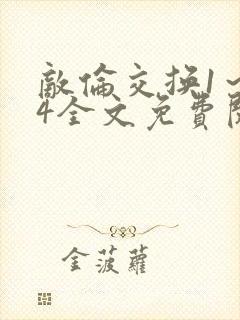 敵倫交换1~
4全文免費閱
金菠蘿